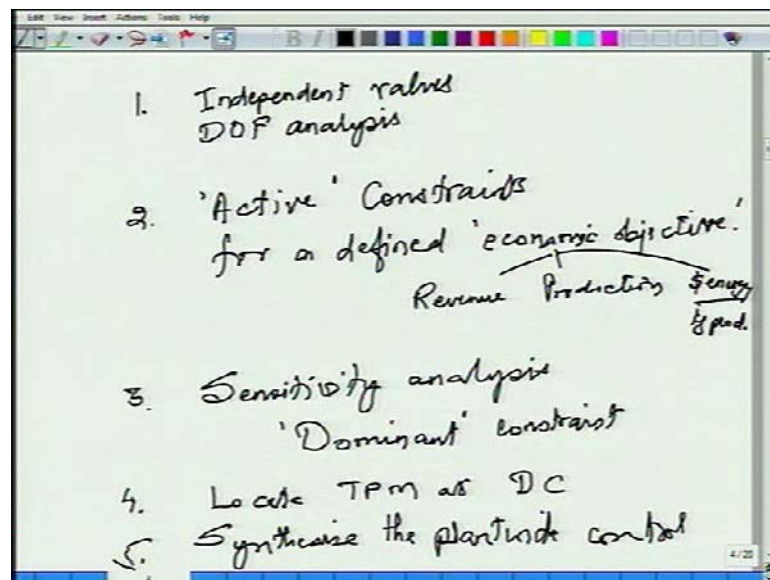 Edit View Insert Actions Tools Help
1. Independent valves
DOF analysis
2. 'Active' Constraints
for a defined 'economic objective.'
Revenue Production $energy
kg prod.
3. Sensitivity analysis
'Dominant' constraint
4. Locate TPM at DC
5. Synthesize the plantwide control
4/20